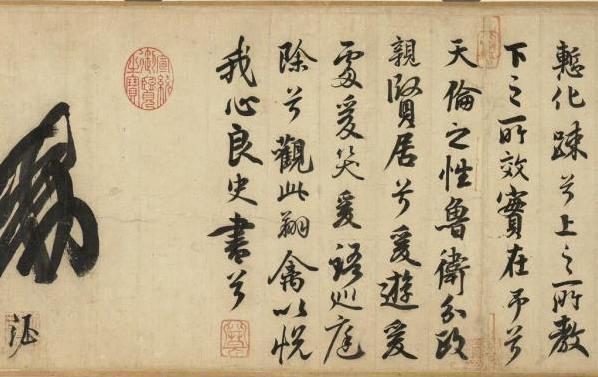 慙化踈兮上之所教
下之所效實在予兮
天倫之性魯衛分政
親賢居兮爰遊爰
處爰笑爰語巡庭
除兮觀此翔禽以悅
我心良史書兮
宣統御覽之寶